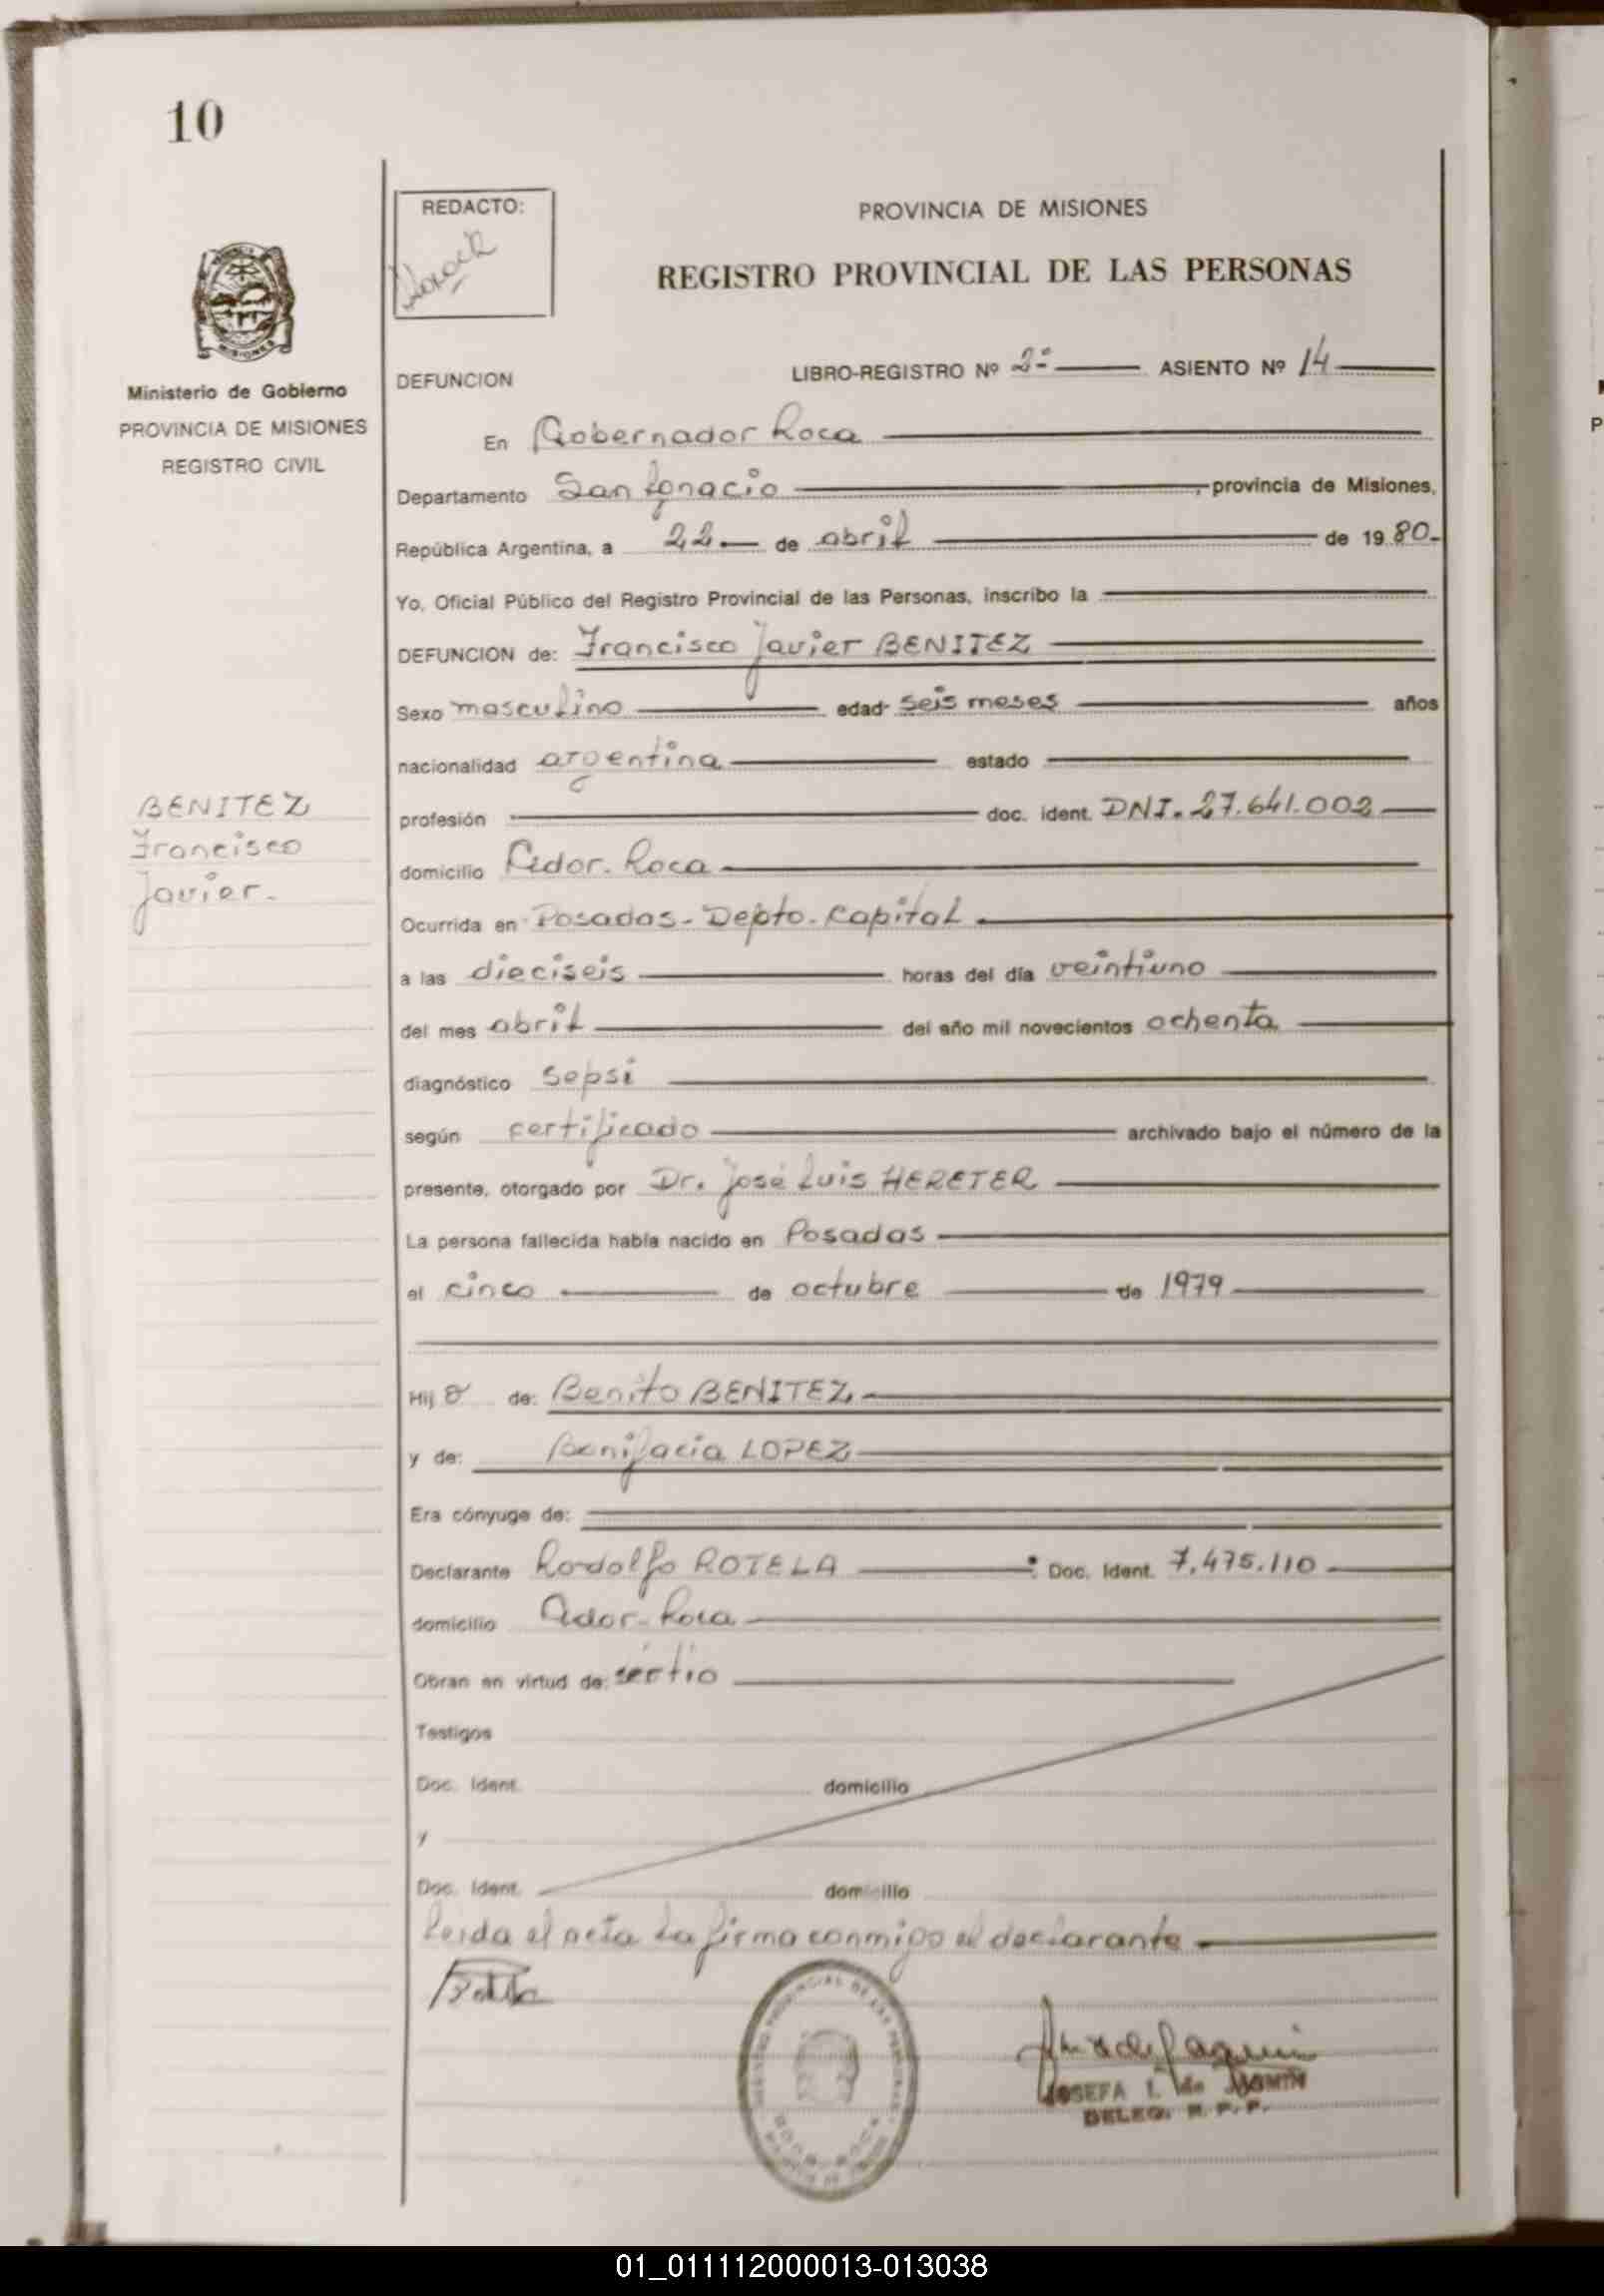 10
REDACTO:
PROVINCIA DE MISIONES
REGISTRO PROVINCIAL DE LAS PERSONAS
MISIONES
Ministerio de Gobierno
PROVINCIA DE MISIONES
REGISTRO CIVIL
DEFUNCION LIBRO-REGISTRO Nº 2º ASIENTO Nº 14
En Gobernador Roca
Departamento San Ignacio, provincia de Misiones,
República Argentina, a 22 de abril de 1980.
Yo, Oficial Público del Registro Provincial de las Personas, inscribo la
DEFUNCION de: Francisco Javier BENITEZ
Sexo masculino edad seis meses años
nacionalidad argentina estado
profesión doc. ident. DNI. 27.641.002
BENITEZ
Francisco
Javier.
domicilio Gdor. Roca
Ocurrida en Posadas - Depto. Capital
a las dieciseis horas del día veintiuno
del mes abril del año mil novecientos ochenta
diagnóstico Sepsi
según certificado archivado bajo el número de la
presente, otorgado por Dr. José Luis HERETER
La persona fallecida había nacido en Posadas
el cinco de octubre de 1979
Hijo de: Benito BENITEZ
y de: Bonifacia LOPEZ
Era cónyuge de:
Declarante Rodolfo ROTELA Doc. Ident. 7.475.110
domicilio Gdor. Roca
Obran en virtud de:
Testigos
Doc. Ident. domicilio
y
Doc. Ident. domicilio
Leida el acta la firma conmigo el declarante
JOSEFA I. de
DELEG. R. P. P.
01_011112000013-013038